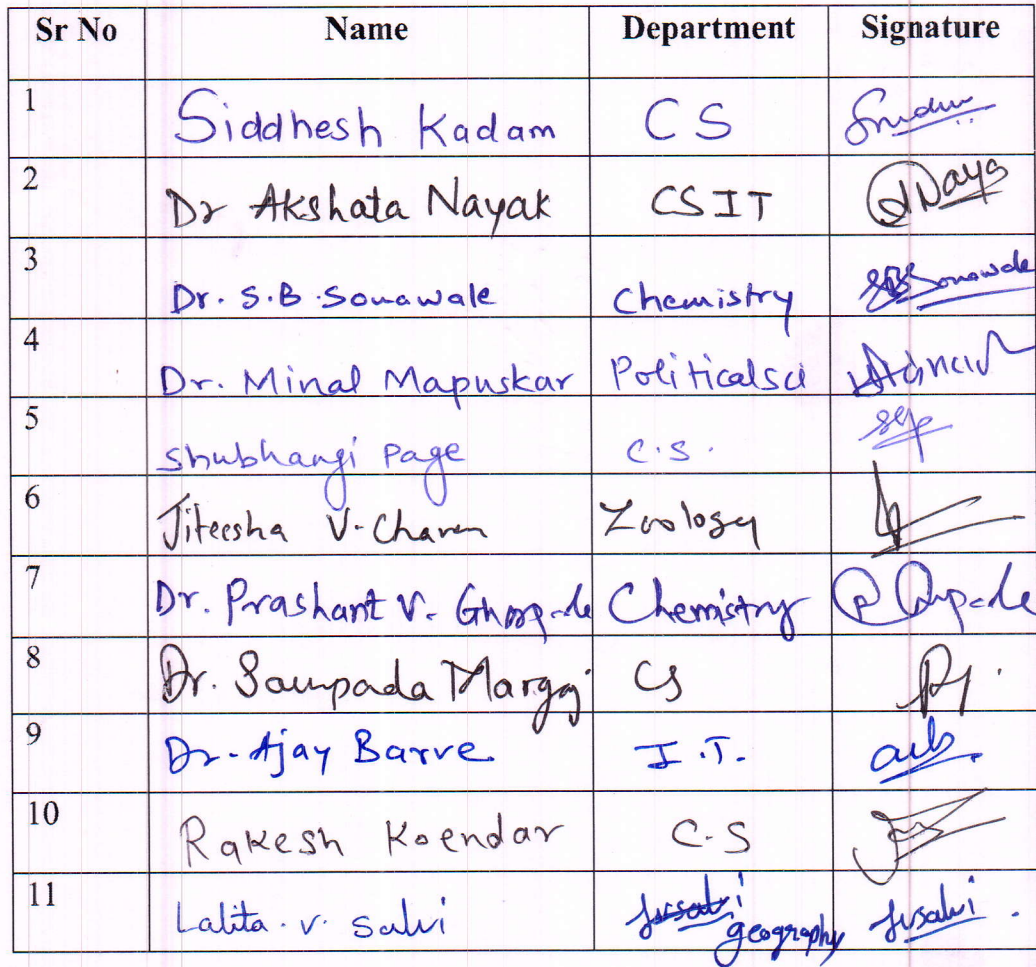 Sr No Name Department Signature
1 Siddhesh Kadam CS
2 Dr Akshata Nayak CSIT
3 Dr. S.B. Sonawale Chemistry Sonawale
4 Dr. Minal Mapuskar Political sci
5 Shubhangi Page C.S.
6 Jiteesha V. Chavan Zoology
7 Dr. Prashant V. Ghorpade Chemistry
8 Dr. Sampada Margaj CS
9 Dr. Ajay Barve I.T.
10 Rakesh Koendar C.S
11 Lalita. v. Salvi geography lvsalvi